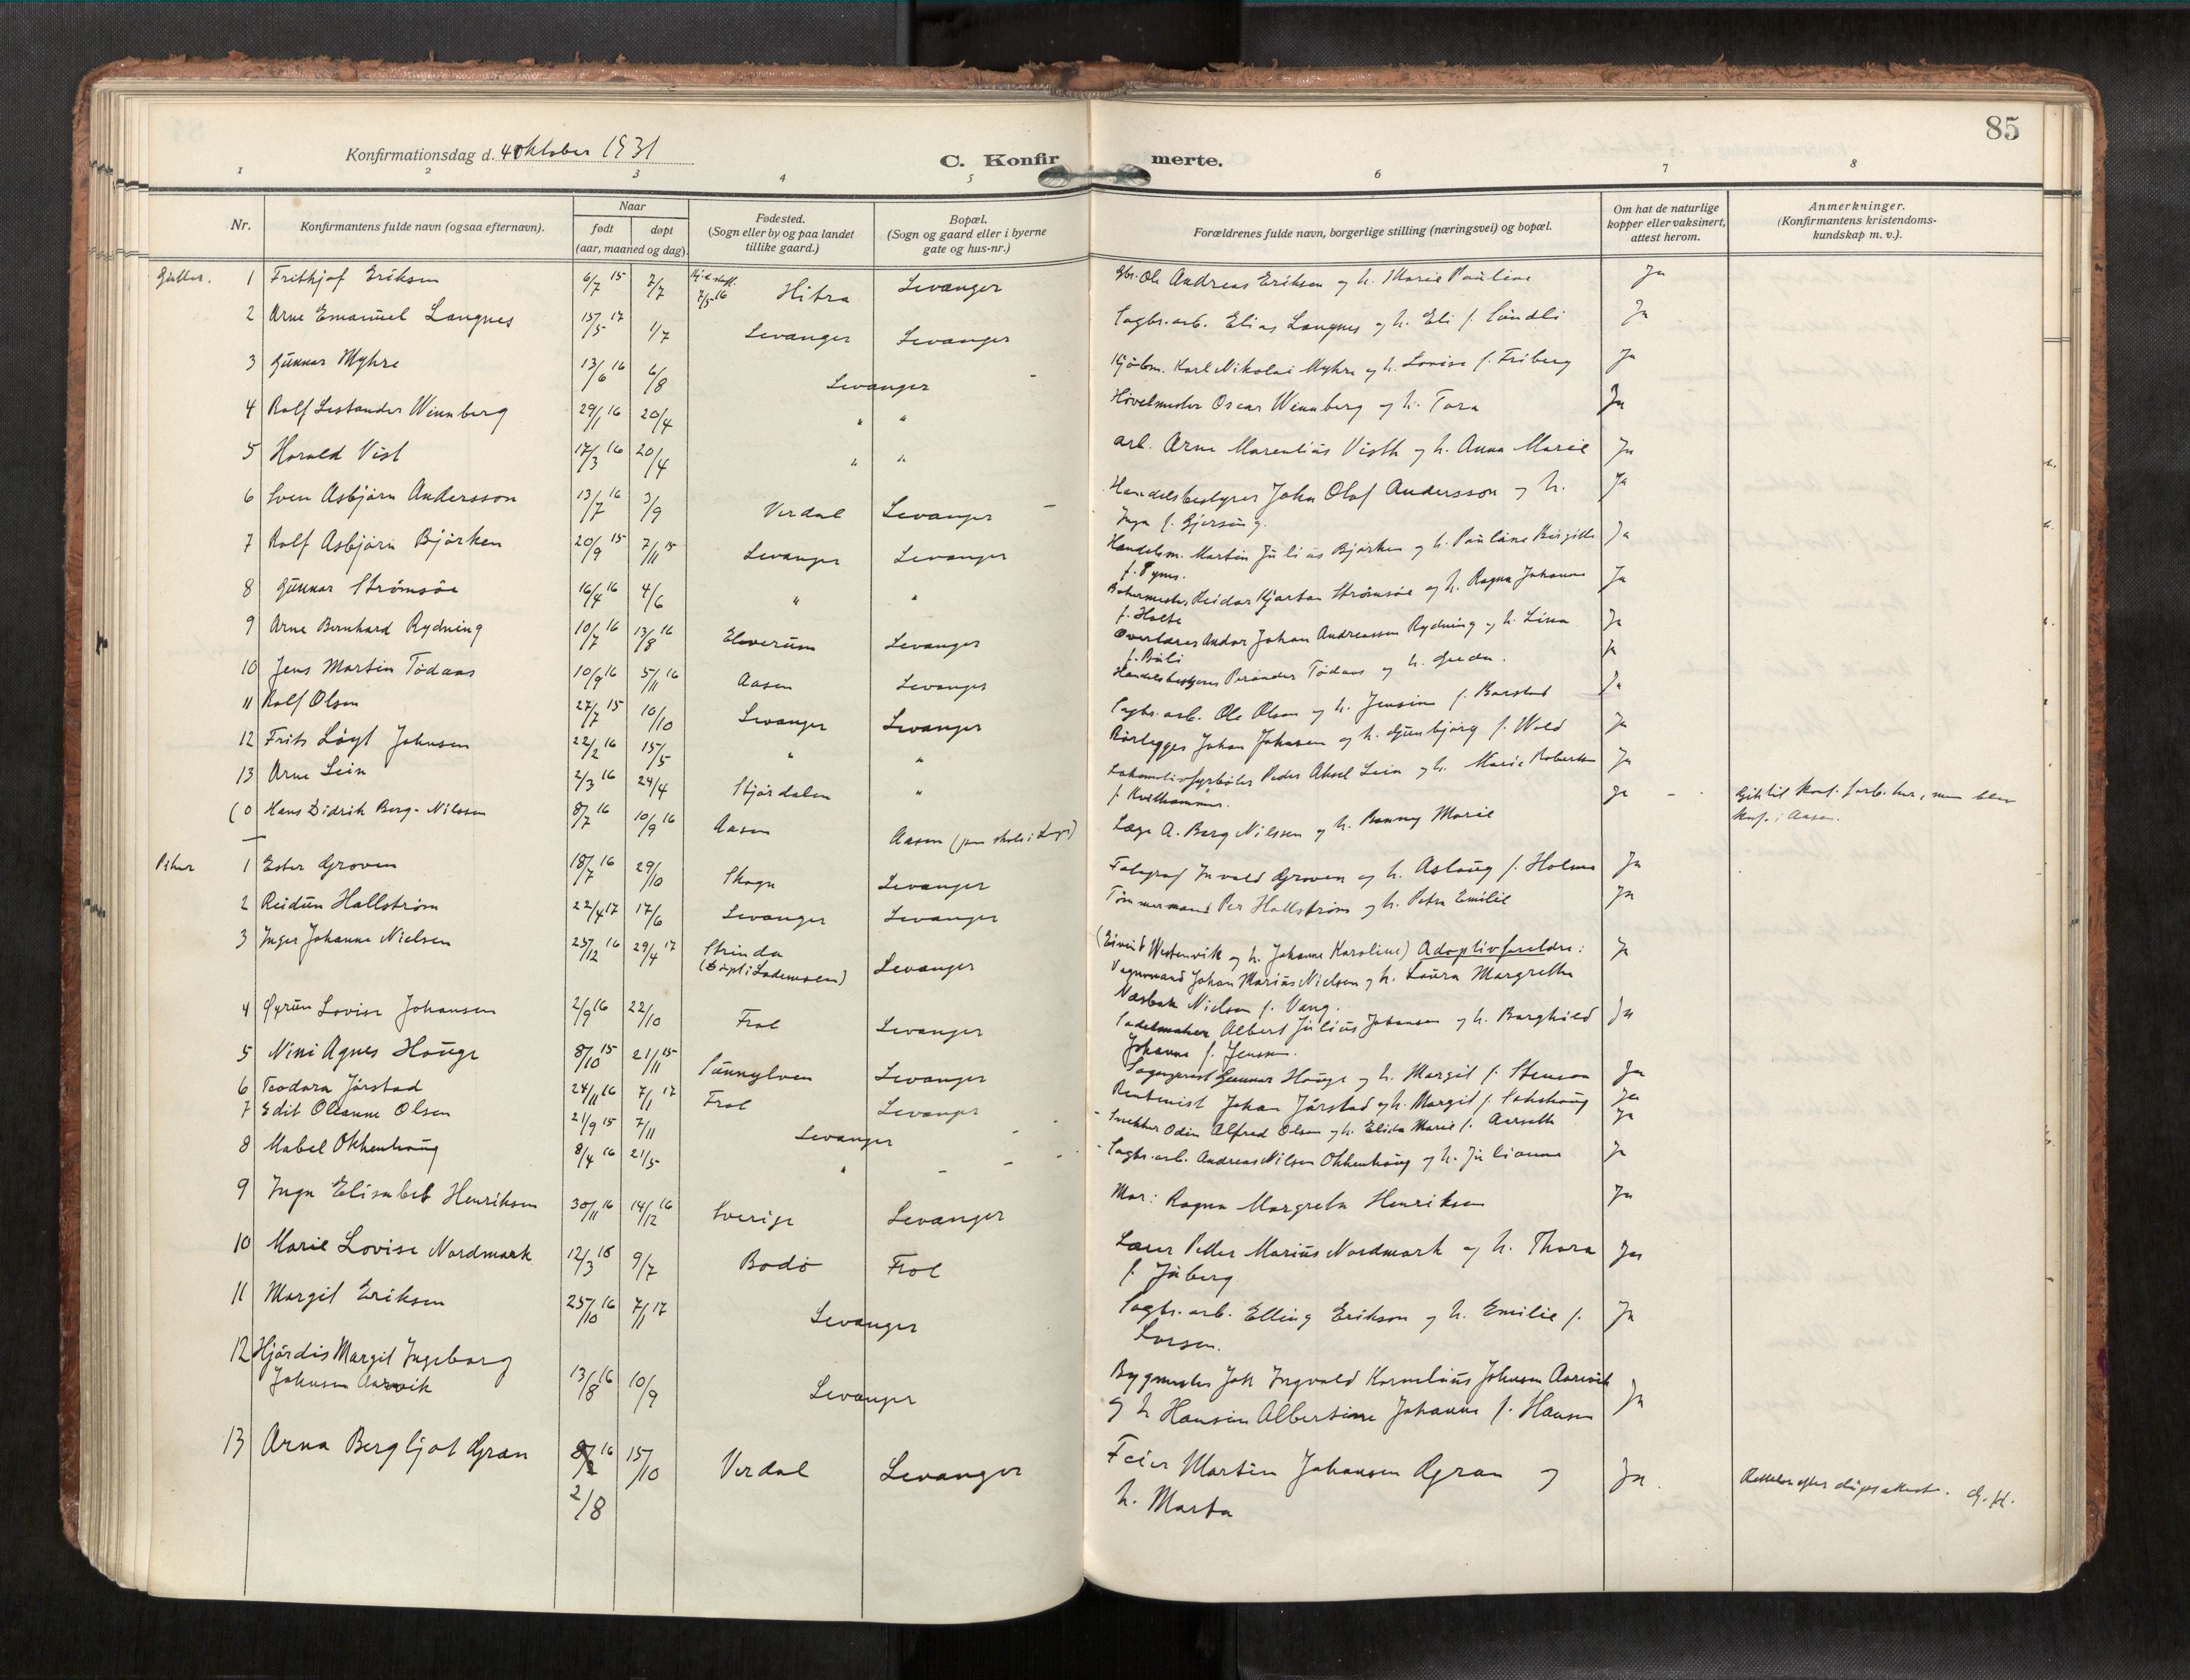 85
Konfirmationsdag d. 4 Oktober 1931
C. Konfirmerte.
1 2 3 4 5 6 7 8
Nr. Konfirmantens fulde navn (ogsaa efternavn). Naar født døpt (aar, maaned og dag) Fødested. (Sogn eller by og paa landet tillike gaard.) Bopæl. (Sogn og gaard eller i byerne gate og hus-nr.) Forældrenes fulde navn, borgerlige stilling (næringsvei) og bopæl. Om hat de naturlige kopper eller vaksinert, attest herom. Anmerkninger. (Konfirmantens kristendomskundskap m. v.).
Gutter. 1 Frithjof Eriksen 6/7 15 7/7 7/5 16 Hitra Levanger Ole Andreas Eriksen og h. Marie Pauline Ja
2 Arne Emanuel Langnes 15/5 17 1/7 Levanger Levanger Sagbr.arb. Elias Langnes og h. Eli f. Sundli Ja
3 Gunnar Myhre 13/6 16 6/8 Levanger - Kjøbm. Karl Nikolai Myhre og h. Lovise f. Friberg Ja
4 Rolf Lestander Winnberg 29/1 16 20/4 " " Høvelmester Oscar Winnberg og h. Tora Ja
5 Harald Vist 17/3 16 20/4 " " arb. Arne Marentius Visth og h. Anna Marie Ja
6 Sven Asbjørn Andersson 13/7 16 3/9 Verdal Levanger - Handelsbestyrer John Olof Andersson og h. Ja
Inga f. Gjersing.
7 Rolf Asbjørn Bjørken 20/9 15 7/11 15 Levanger Levanger Handelsm. Martin Julius Bjørken og h. Pauline Birgitte Ja
f. Tynes.
8 Gunnar Strømsøe 16/4 16 4/6 " " Bakermester Reidar Kjartan Strømsøe og h. Ragna Johanne Ja
f. Holte
9 Arne Bernhard Rydning 10/7 16 13/8 16 Elverum Levanger Overlærer Andor Johan Andreassen Rydning og h. Lina Ja
f. Buli
10 Jens Martin Tødaas 10/9 16 5/11 16 Aasen Levanger Handelsbestyrer Perander Tødaas og h. Gurda. Ja
11 Rolf Olsen 27/7 15 10/10 Levanger Levanger Sagbr.arb. Ole Olsen og h. Jensine f. Barstad Ja
12 Frits Løgt Johnsen 22/2 16 15/5 " " Rørlegger Johan Johnsen og h. Gunbjørg f. Wold Ja
13 Arne Lein 2/3 16 24/4 Stjørdalen " Lokomotivfyrbøter Peder Aksel Lein og h. Marie Roberta Ja
f. Kvithammer.
(0 Hans Didrik Berg-Nilssen 8/7 16 10/9 16 Aasen Aasen Læge A. Berg Nilssen og h. Ja - Gik til konf. forb. her, men blev
konf. i Aasen.
Piker 1 Ester Groven 18/7 16 29/10 Skogn Levanger Groven og h. Aslaug f. Holmen Ja
2 Reidun Hallstrøm 22/4 17 17/6 Levanger Levanger Tømmermand Per Hallstrøm og h. Petra Emilie Ja
3 Inger Johanne Nielsen 25/12 16 29/4 17 Strinda Levanger (Eivind Westervik og h. Johanne Karoline) Adoptivforeldre: Ja
(Døpt i Lademoen) Vognmand Johan Marius Nielsen og h. Laura Margrethe
Næsbak Nielsen f. Vang.
4 Gyrun Lovise Johansen 2/9 16 22/10 Frol Levanger Sadelmaker Albert Julius Johansen og h. Borghild Ja
Johanne f. Jenssen.
5 Nini Agnes Houge 8/10 15 21/11 15 Sunnylven Levanger Gunnar Houge og h. Margit f. Stenson Ja
6 Teodora Jørstad 24/11 16 7/1 17 Frol Levanger Rentenist Johan Jørstad og h. Margit f. Ja
7 Edit Oleanne Olsen 21/9 15 7/11 Levanger - - Snekker Odin Alfred Olsen og h. Elida Marie f. Aarseth Ja
8 Mabel Okkenhaug 8/4 16 21/5 " - - - Sagbr.arb. Andreas Nilsen Okkenhaug og h. Julianne Ja
9 Inga Elisabet Henriksen 30/11 16 14/12 16 Sverige Levanger Mor: Ragna Margreta Henriksen Ja
10 Marie Lovise Nordmark 12/3 16 9/7 Bodø Frol Lærer Peder Marius Nordmark og h. Thora Ja
f. Juberg
11 Margit Eriksen 25/10 16 7/1 17 Levanger Sagbr.arb. Elling Erikson og h. Emilie f. Ja
Larsen.
12 Hjørdis Margit Ingeborg
Johnsen Aarvik 13/8 16 10/9 Levanger Bygmester Ingvald Kornelius Johnsen Aarvik Ja
og h Hansine Albertine Johanne f. Hansen
13 Arna Bergljot Gran 8/2 16 15/10 Verdal Levanger Feier Martin Johansen Gran og Ja. Rettelse efter dåpsattest. G.H.
2/8 h. Marta